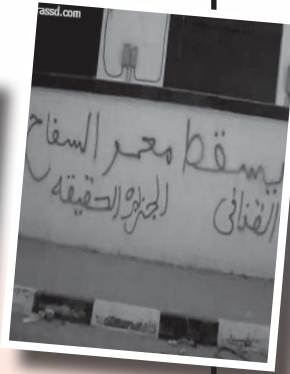 assd.com
يسقط معمر السفاح
القذافى الجزيرة الحقيقه